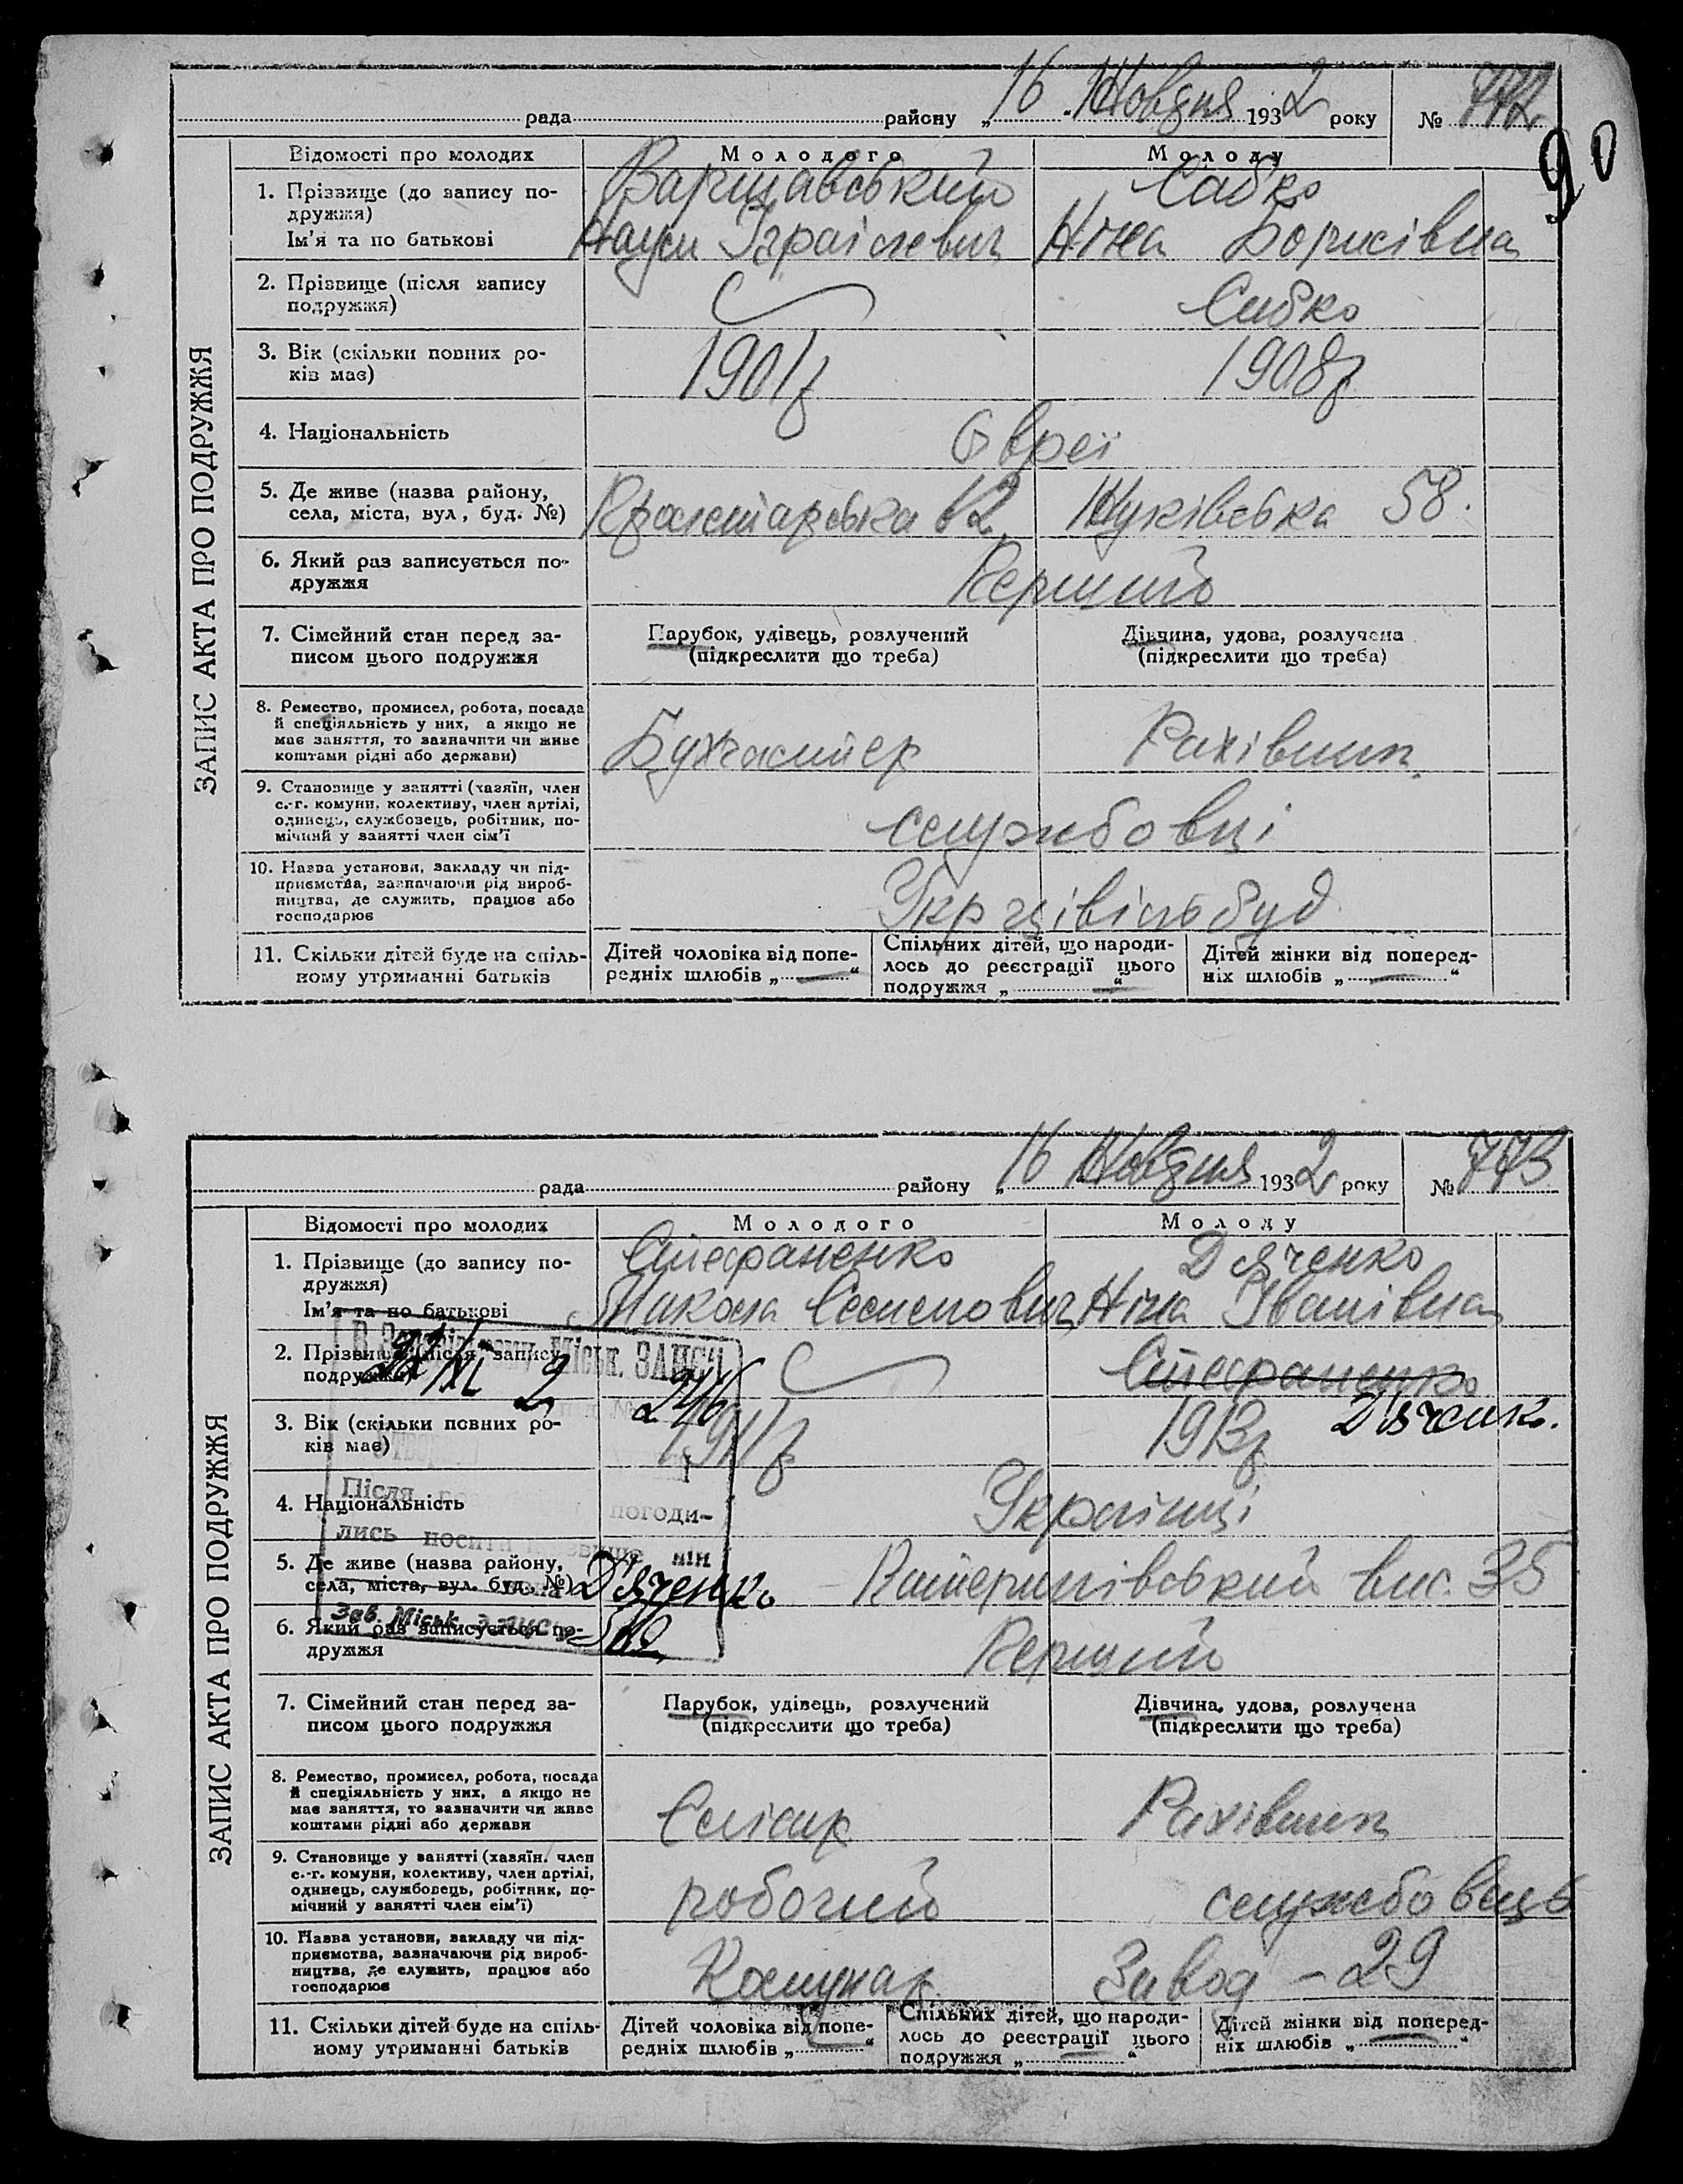 рада району „16 Жовтня 1932 року № 772
90
ЗАПИС АКТА ПРО ПОДРУЖЖЯ
Відомості про молодих
Молодого
Молоду
1. Прізвище (до запису по-
дружжя)
Ім'я та по батькові
Варшавський
Наум Ізраілевич
Сабко
Ніна Борисівна
2. Прізвище (після запису
подружжя)
Сабко
3. Вік (скільки повних ро-
ків має)
1901р
1908р
4. Національність
Євреї
5. Де живе (назва району,
села, міста, вул, буд. №)
12
Жуківська 58.
6. Який раз записується по-
дружжя
Перший
7. Сімейний стан перед за-
писом цього подружжя
Парубок, удівець, розлучений
(підкреслити що треба)
Дівчина, удова, розлучена
(підкреслити що треба)
8. Ремество, промисел, робота, посада
й спеціяльність у них, а якщо не
має заняття, то зазначити чи живе
коштами рідні або держави)
Бухгалтер
Рахівник
9. Становище у занятті (хазяїн, член
с.-г. комуни, колективу, член артілі,
одинець, службовець, робітник, по-
мічний у занятті член сім'ї
службовці
10. Назва установи, закладу чи під-
приємства, зазначаючи рід вироб-
ництва, де служить, працює або
господарює
Укрцівільбуд
11. Скільки дітей буде на спіль-
ному утриманні батьків
Дітей чоловіка від попе-
редніх шлюбів „—“
Спільних дітей, що народи-
лось до реєстрації цього
подружжя „—“
Дітей жінки від поперед-
ніх шлюбів „—“
рада району „16 Жовтня 1932 року № 773
ЗАПИС АКТА ПРО ПОДРУЖЖЯ
Відомості про молодих
Молодого
Молоду
1. Прізвище (до запису по-
дружжя)
Ім'я та по батькові
Стефаненко
Микола Семенович
Дяченко
Ніна Іванівна
2. Прізвище (після запису
подружжя)
Стефаненко
Дяченк.
3. Вік (скільки повних ро-
ків має)
1911р
1913р
Міськ. ЗАГСі
22/XI 2
246
Після
погоди-
лись носити
Дяченко
Зав. Міськ.
4. Національність
Українці
5. Де живе (назва району,
села, міста, вул. буд. №)
Катеринівський вис. 35
6. Який раз записується по-
дружжя
Перший
7. Сімейний стан перед за-
писом цього подружжя
Парубок, удівець, розлучений
(підкреслити що треба)
Дівчина, удова, розлучена
(підкреслити що треба)
8. Ремество, промисел, робота, посада
й спеціяльність у них, а якщо не
має заняття, то зазначити чи живе
коштами рідні або держави
Слісар
Рахівник
9. Становище у занятті (хазяїн, член
с.-г. комуни, колективу, член артілі,
одинець, службовець, робітник, по-
мічний у занятті член сім'ї)
робочий
службовець
10. Назва установи, закладу чи під-
приємства, зазначаючи рід вироб-
ництва, де служить, працює або
господарює
Комунар
Завод - 29
11. Скільки дітей буде на спіль-
ному утриманні батьків
Дітей чоловіка від попе-
редніх шлюбів „—“
Спільних дітей, що народи-
лось до реєстрації цього
подружжя „—“
Дітей жінки від поперед-
ніх шлюбів „—“